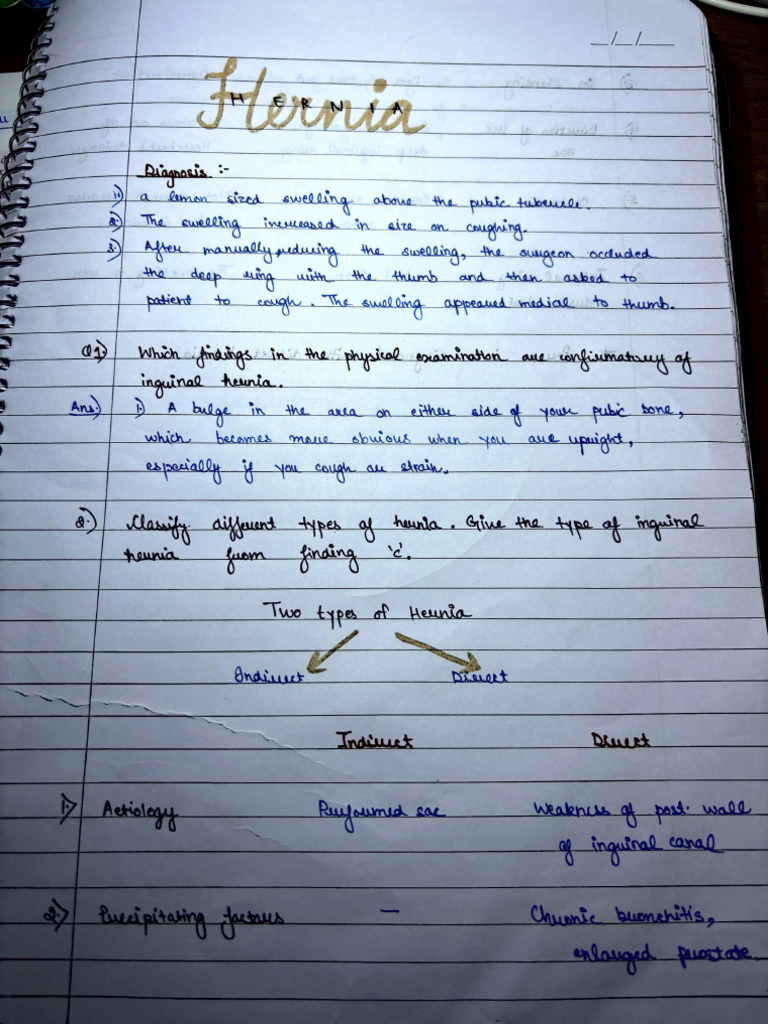 __/__/____
Hernia
HERNIA
Diagnosis :-
1) a lemon sized swelling above the pubic tubercle.
2) The swelling increased in size on coughing.
3) After manually, reducing the swelling, the surgeon occluded
the deep ring with the thumb and then asked to
patient to cough. The swelling appeared medial to thumb.
Q1) Which findings in the physical examination are confirmatory of
inguinal hernia.
Ans:) 1) A bulge in the area on either side of your pubic bone,
which becomes more obvious when you are upright,
especially if you cough or strain.
2.) Classify different types of hernia. Give the type of inguinal
hernia from finding 'c'.
Two types of Hernia
Indirect Direct
Indirect Direct
1.) Aetiology Preformed sac Weakness of post. wall
of inguinal canal
2.) Precipitating factors — Chronic bronchitis,
enlarged prostate.